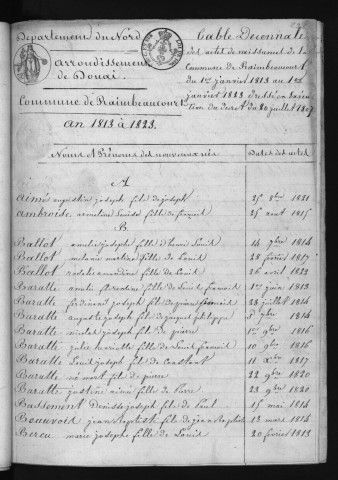 Département du Nord
arrondissement
de Douai.
Commune de Raimbeaucourt
an 1813 à 1823.
Table Décennale
des actes de naissances de la
Commune de Raimbeaucourt
du 1er janvier 1813 au 1er
janvier 1823 dressée en exécu
tion du décret du 20 juillet 1807
Noms et Prénoms des nouveaux nés
Dates des actes
A
Aimé augustin joseph fils de joseph 25 8bre 1821
Ambroise Louise fille de 25 aout 1815
B
Ballot amélie joseph fille d'henri Louis 14 7bre 1814
Ballot mélanie martine fille de Louis 28 février 1817
Ballot rosalie amandine fille de Louis 26 avril 1822
Baratte amélie florentine fille de Louis 1er juin 1813
Baratte ferdinand joseph fils de pierre 28 juillet 1814
Baratte auguste joseph fils de jacques philippe 8 9bre 1814
Baratte nicolas joseph fils de pierre 1er 9bre 1816
Baratte julie fille de Louis 10 9bre 1816
Baratte Louis joseph fils de Constant 11 Xbre 1817
Baratte né mort fils de pierre 22 9bre 1820
Baratte justine aimée fille de Pierre 23 9bre 1820
Bassement Denis joseph fils de Paul 15 mai 1814
Beauvois jean Baptiste fils de jean Baptiste 13 mars 1814
Bercu marie josephe fille de Louis 20 février 1813